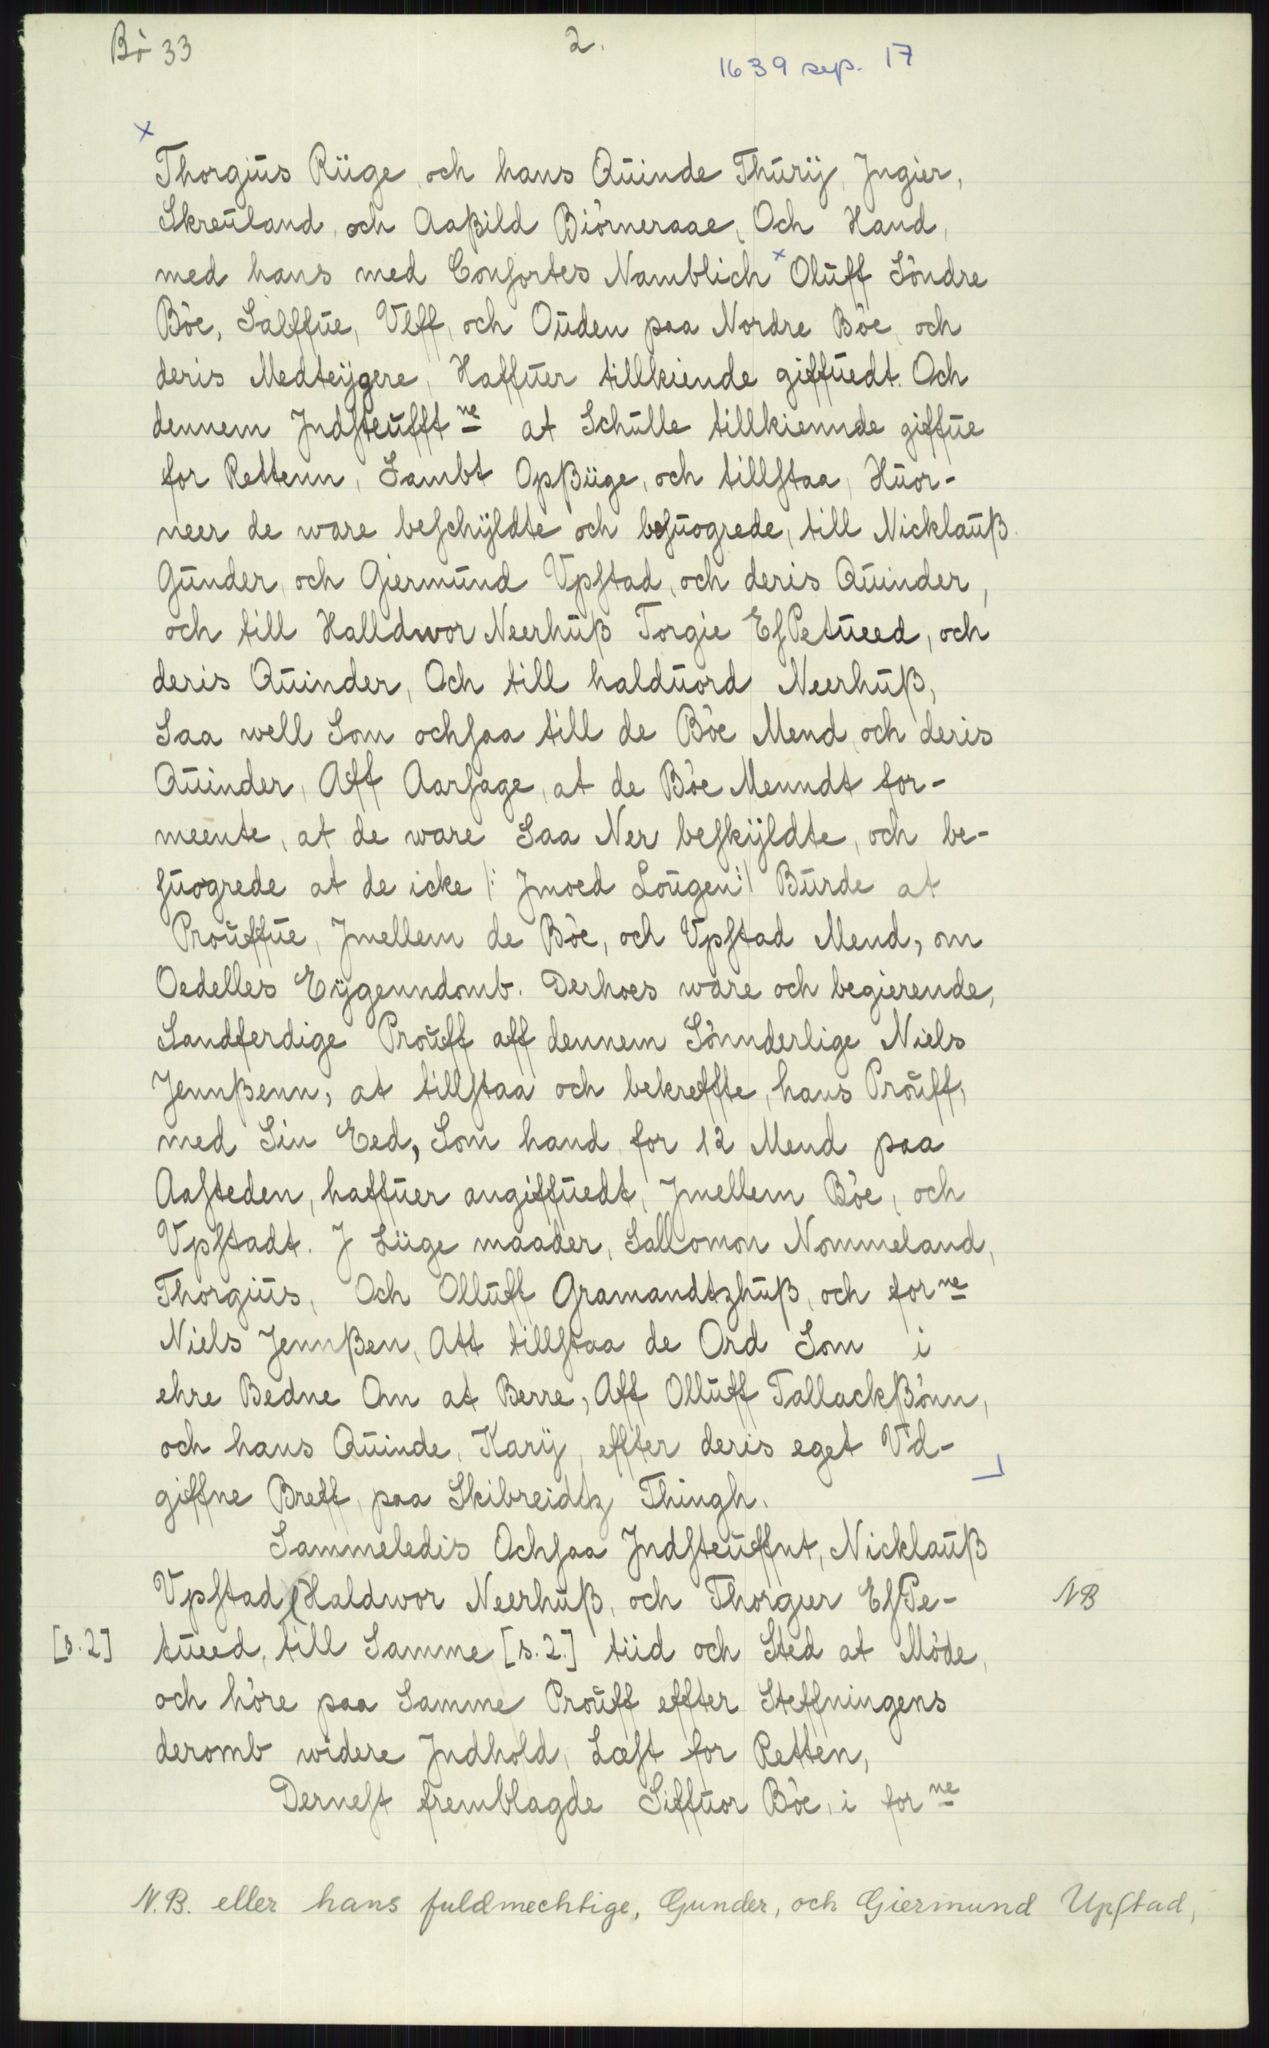 Bö 33
2.
1639 sep. 17
x
Thorgius Rüge, och hans Quinde Thurÿ, Jngier,
Skreuland, och Aaßild Biörneraae, Och Hand,
med hans med Consortes Namblich x Oluff Söndre
Böe, Salffue, Vlff, och Ouden paa Nordre Böe, och
deris Medteÿgere, Haffuer tillkiende giffuedt. Och
dennem Jndsteufft ne at Schulle tillkiennde giffue
for Rettenn, Sambt Opßüge, och tillstaa, Huor-
neer de ware beschÿldte och besuogrede, till Nicklauß
Gunder, och Giermund Vpstad, och deris Quinder,
och till Halldwor Neerhuß Torgie EsPetueed, och
deris Quinder, Och till halduord Neerhuß,
Saa well Som ochsaa till de Böe Mend, och deris
Quinder, Aff Aarsage, at de Böe Menndt for-
meente, at de ware Saa Ner beskÿldte, och be-
suogrede at de icke /: Jmoed Lougen :/ Burde at
Prouffue, Jmellem de Böe, och Vpstad Mend, om
Oedelles Eÿgenndomb. Derhoes ware och begierende,
Sandferdige Prouff aff dennem Sönnderlige Niels
Jennßenn, at tillstaa och bekreffte, hans Prouff,
med Sin Eed, Som hand for 12 Mend paa
Aasteden, haffuer angiffuedt, Jmellem Böe, och
Vpstadt. J Lüge maader, Sallomon Nommeland,
Thorgius, Och Olluff Gramandtzhuß, och for ne
Niels Jennßen, Att tillstaa de Ord Som i
ehre Bedne Om at Berre, Aff Olluff Tallackßönn,
och hans Quinde, Karÿ, effter deris eget Vd-
giffne Breff, paa Skibreidtz Thingh.
Sammeledis Ochsaa Jndsteuffnt, Nicklauß
Vpstad, Haldwor Neerhuß, och Thorgier EsPe- NB
[s. 2] tueed, till Samme [s. 2.] tiid och Sted at Möde,
och höre paa Samme Prouff effter Steffningens
deromb widere Jndhold, Læst for Retten,
Dernest fremblagde Siffuor Böe, i for ne
N.B. eller hans fuldmechtige, Gunder, och Giermund Upstad,